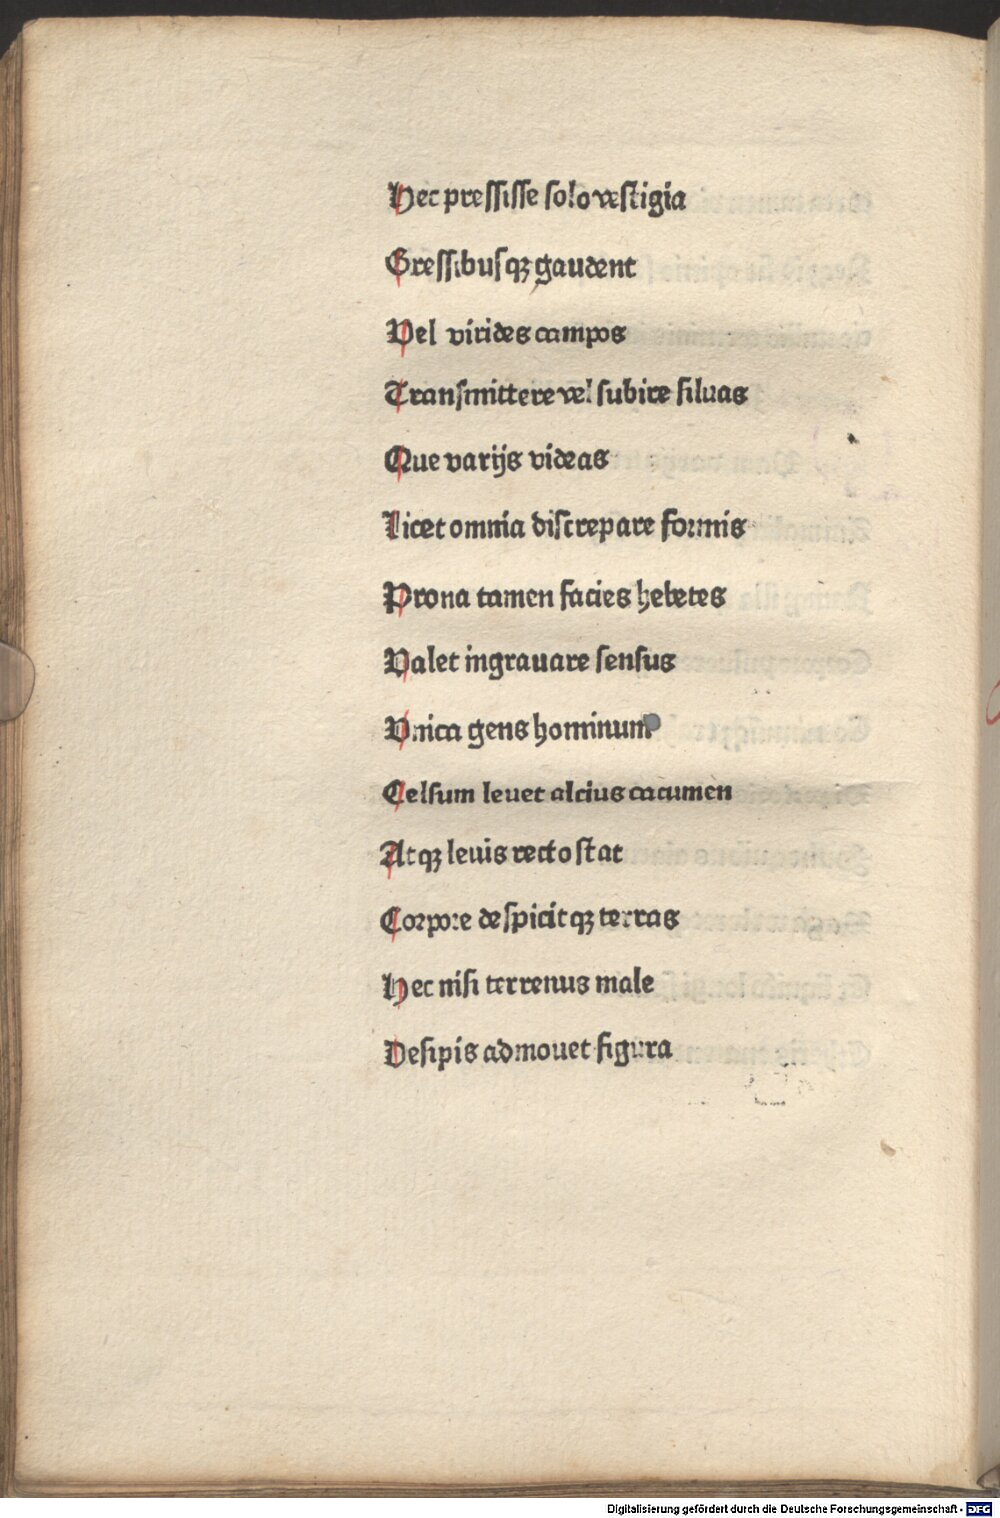 Hec pressisse solo vestigia
Gressibusqꝫ gaudent
Vel virides campos
Transmittere vel subire siluas
Que varijs videas
Licet omnia discrepare formis
Prona tamen facies hebetes
Valet ingrauare sensus
Vnica gens hominum
Celsum leuet alcius cacumen
Atqꝫ leuis recto stat
Corpore despicitqꝫ terras
Hec nisi terrenus male
Desipis admouet figura
Digitalisierung gefördert durch die Deutsche Forschungsgemeinschaft - DFG